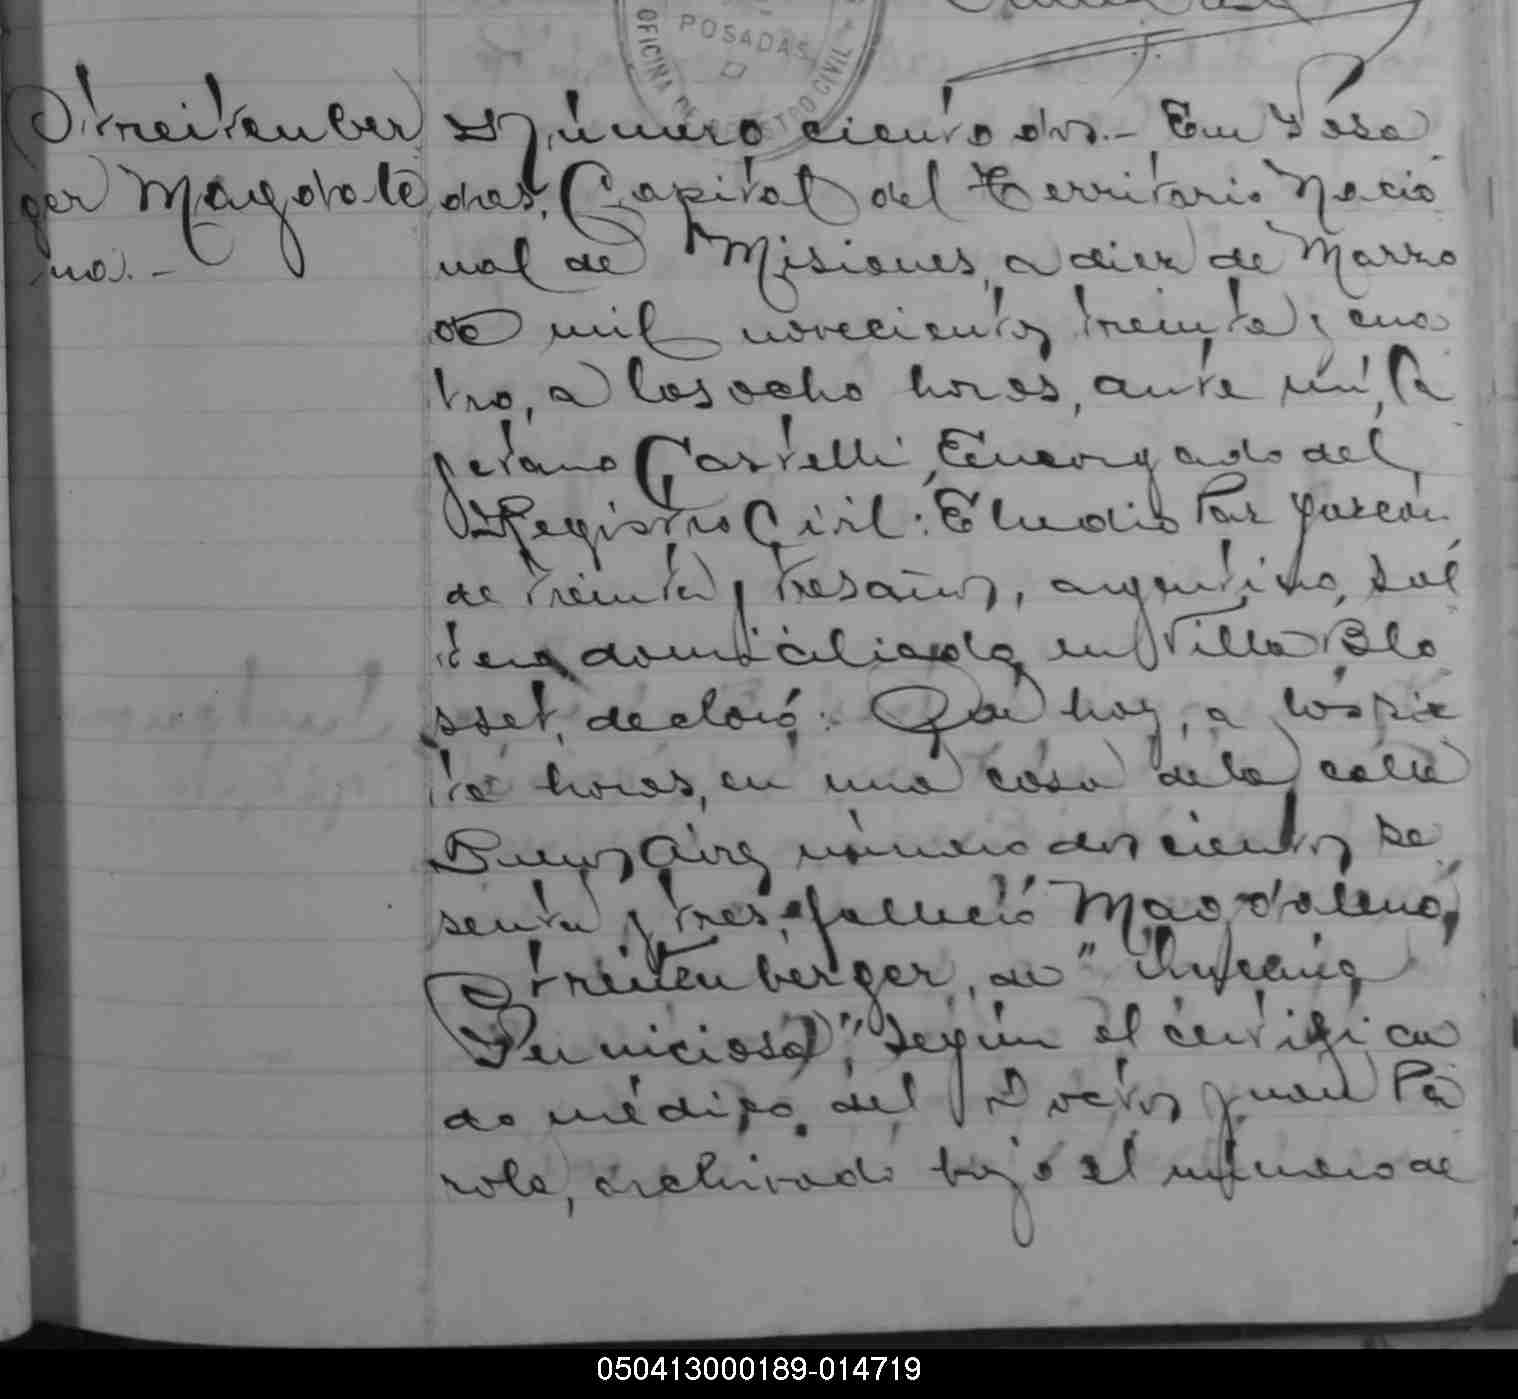 POSADAS
OFICINA DE REGISTRO CIVIL
Streitenber
ger Magdale
na.-
Número ciento dos.- En Posa
das, Capital del Territorio Nacio
nal de Misiones, a diez de Marzo
de mil novecientos treinta y cua
tro, a las ocho horas, ante mí, Ca
yetano Castelli, Encargado del
Registro Civil: Eludio
de treinta y tres años, argentino, sol
tero, domiciliado en Villa Blo
sset, declaró: Que hoy, a las sie
te horas, en una casa de la calle
Buenos Aires número doscientos se
senta y tres, falleció Magdalena
Streitenberger, de "Anemia
Perniciosa", según el certifica
do médico del Doctor Juan Pa
rola, archivado bajo el número de
050413000189-014719